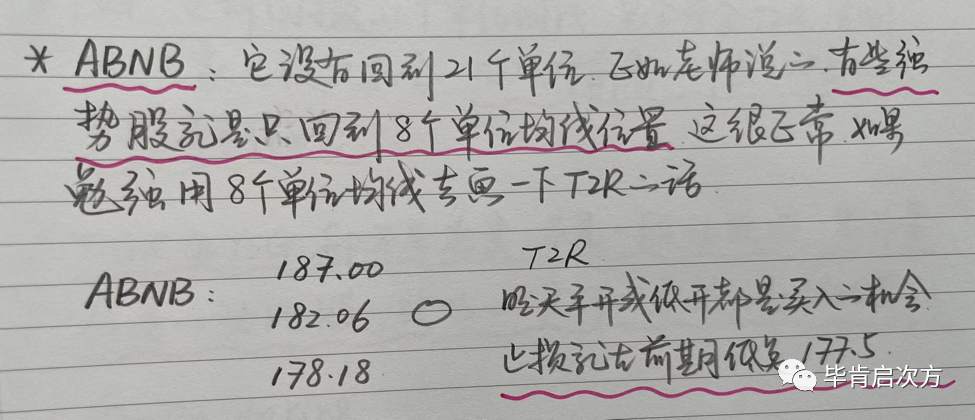 * ABNB：它没有回到21个单位.正如老师说的.有些强
势股就是只回到8个单位均线位置.这很正常.如果
勉强用8个单位均线去画一下T2R的话.
187.00 T2R
ABNB： 182.06 ○ 明天平开或低开都是买入的机会.
178.18 止损就在前期低点177.5.
毕肯启次方